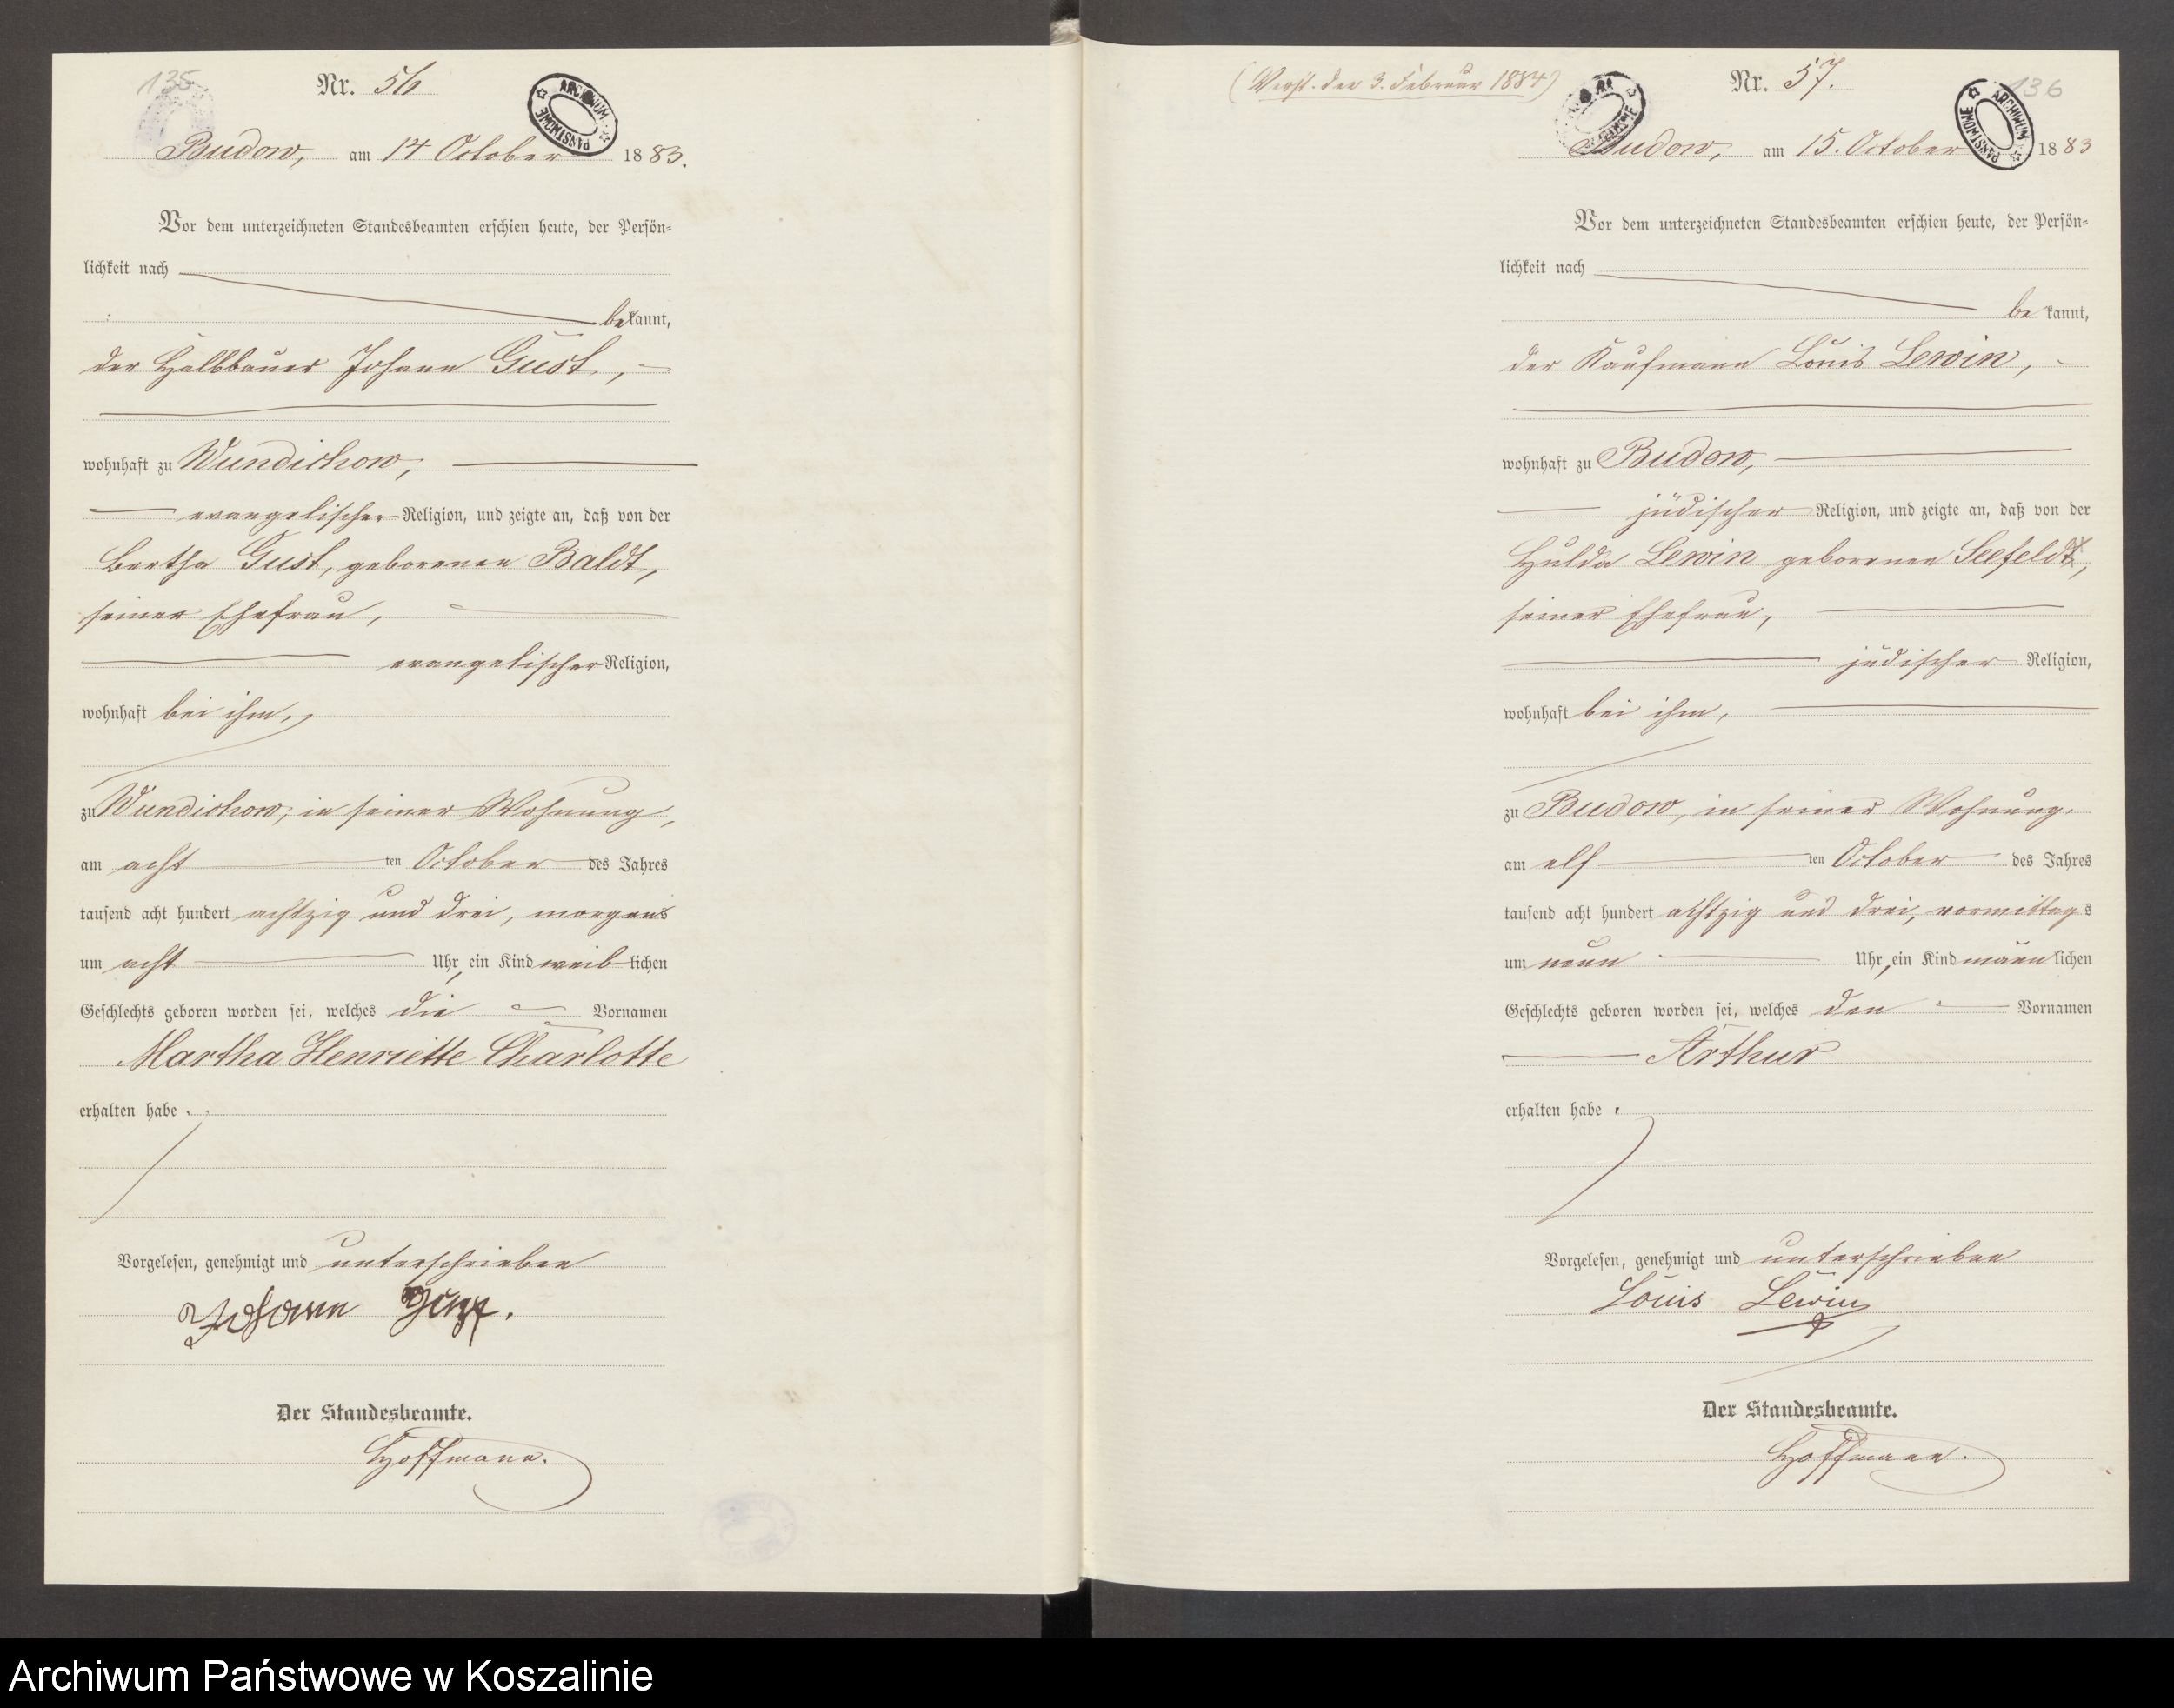 135
Nr. 56
ARCHIWUM PAŃSTWOWE
Budow, am 14 October 1883.
Vor dem unterzeichneten Standesbeamten erschien heute, der Persön-
lichkeit nach
bekannt,
der Halbbauer Johann Gust,
wohnhaft zu Wundichow,
evangelischer Religion, und zeigte an, daß von der
Bertha Gust, geborenen Baldt,
seiner Ehefrau,
evangelischer Religion,
wohnhaft bei ihm,
zu Wundichow, in seiner Wohnung,
am acht ten October des Jahres
tausend acht hundert achtzig und drei, morgens
um acht Uhr, ein Kind weiblichen
Geschlechts geboren worden sei, welches die Vornamen
Martha Henriette Charlotte
erhalten habe.
Vorgelesen, genehmigt und unterschrieben
Johann Gust.
Der Standesbeamte.
Hoffmann.
(Verst. den 3. Februar 1884)
Nr. 57.
136
ARCHIWUM PAŃSTWOWE
Budow, am 15. October 1883
Vor dem unterzeichneten Standesbeamten erschien heute, der Persön-
lichkeit nach
bekannt,
der Kaufmann Louis Lewin,
wohnhaft zu Budow,
jüdischer Religion, und zeigte an, daß von der
Hulda Lewin geborenen Seefeldt,
seiner Ehefrau,
jüdischer Religion,
wohnhaft bei ihm,
zu Budow, in seiner Wohnung,
am elf ten October des Jahres
tausend acht hundert achtzig und drei, vormittags
um neun Uhr, ein Kind männlichen
Geschlechts geboren worden sei, welches den Vornamen
Arthur
erhalten habe.
Vorgelesen, genehmigt und unterschrieben
Louis Lewin
Der Standesbeamte.
Hoffmann.
Archiwum Państwowe w Koszalinie